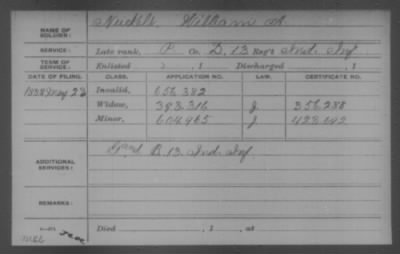 NAME OF SOLDIER: Nuckels, William A.
SERVICE: Late rank, P Co. D, 13 Reg't Ind. Inf.
TERM OF SERVICE: Enlisted , 1 Discharged , 1
DATE OF FILING. CLASS. APPLICATION NO. LAW. CERTIFICATE NO.
1888 May 23 Invalid, 656.382
Widow, 383.316 J. 356.288
Minor, 604.965 J. 428.692
ADDITIONAL SERVICES: B. 13. Ind. Inf.
REMARKS:
Died , 1 , at